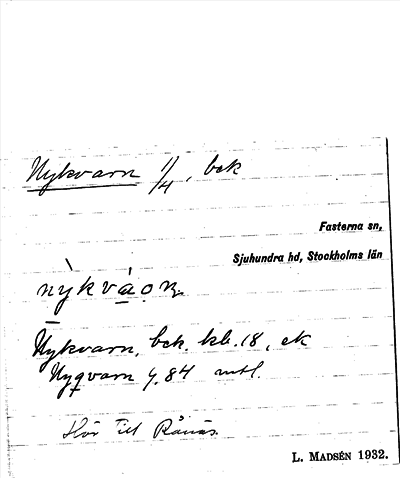 Nykvarn 11/4, bek
Fasterna sn,
Sjuhundra hd, Stockholms län
nỳkváo̤n
Nykvarn, bek. kb. 18, ek
Nyqvarn 4.84 mtl.
Hör till Rånäs.
L. MADSÉN 1932.